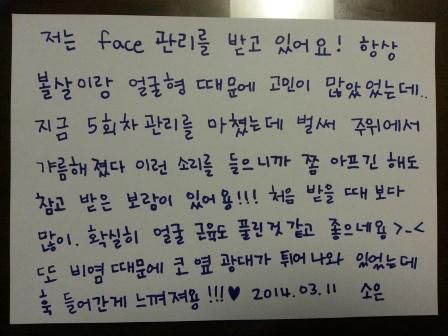 저는 face 관리를 받고 있어요! 항상
볼살이랑 얼굴형 때문에 고민이 많았었는데..
지금 5회차 관리를 마쳤는데 벌써 주위에서
갸름해졌다 이런 소리를 들으니까 쫌 아프긴 해도
참고 받은 보람이 있어용!!! 처음 받을 때 보다
많이. 확실히 얼굴 근육도 풀린것 같고 좋으네용 >_<
또 비염 때문에 코 옆 광대가 튀어 나와 있었는데
훅 들어간게 느껴져용!!!♥ 2014.03.11 소은